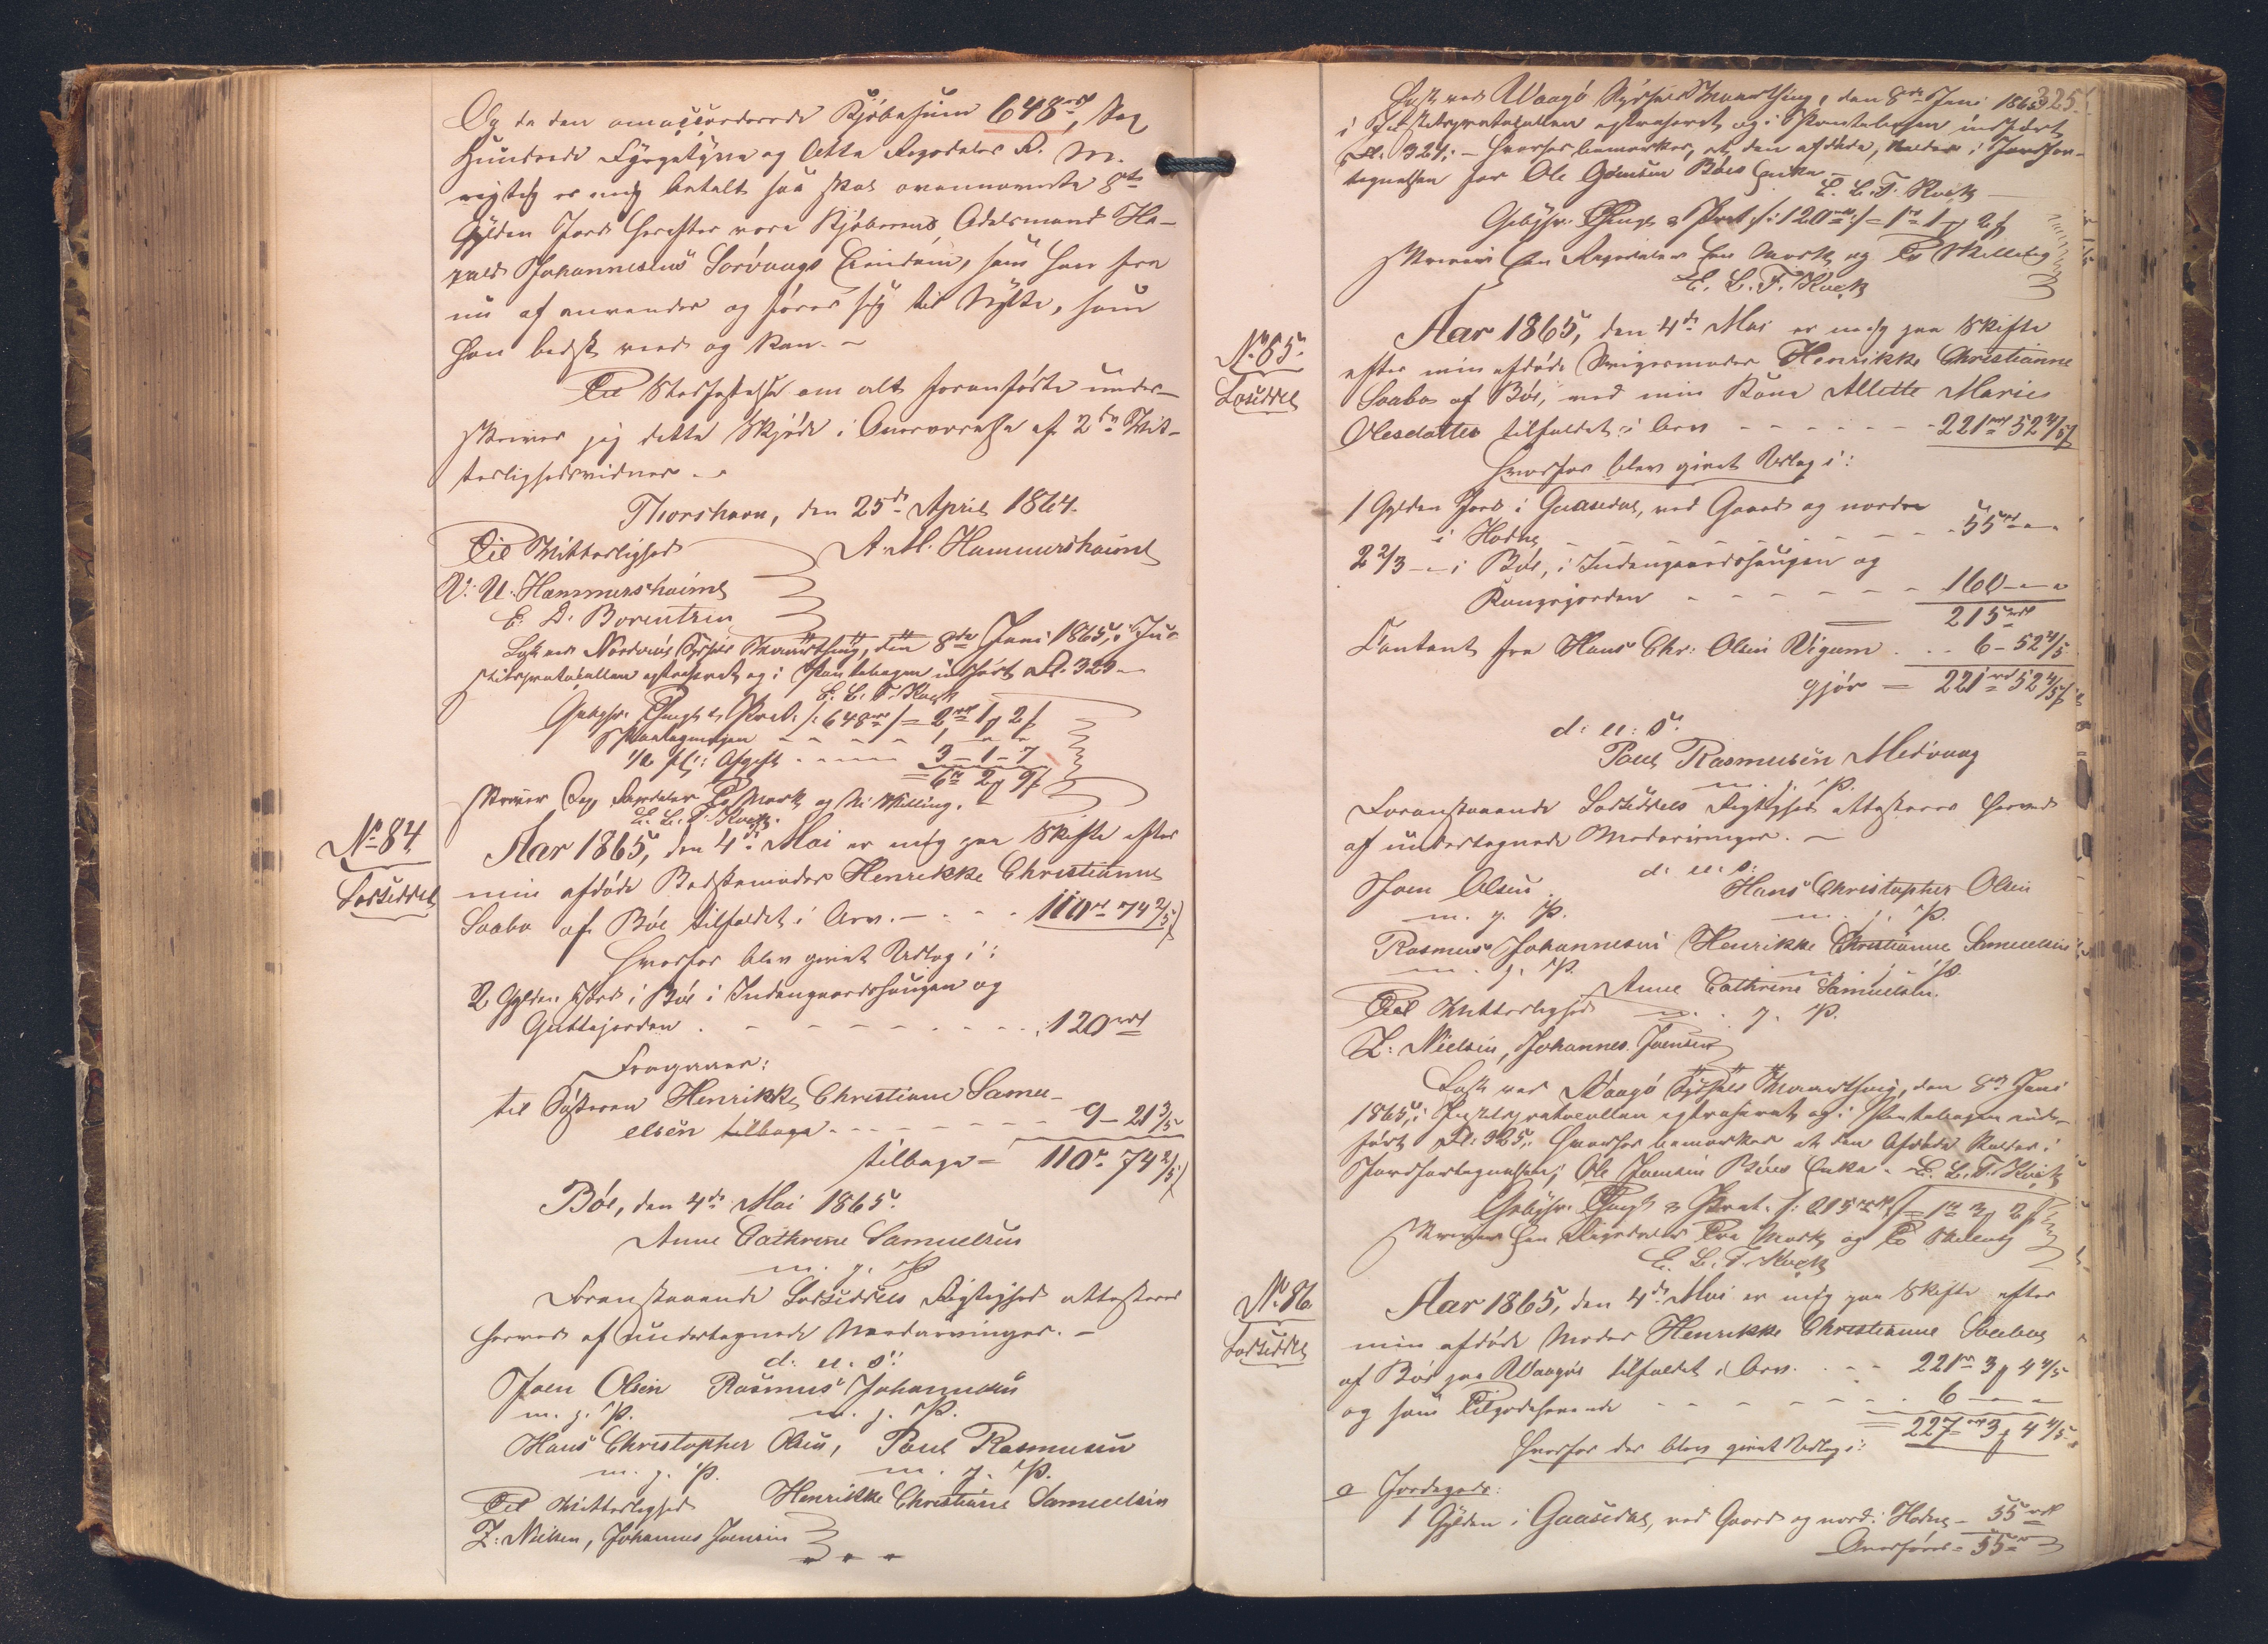 Og da den omaccorderede Kjøbesum 648 rd, Sex
Hundrede Fyrgetyve og Otte Rigsdaler R. M.
rigtig er mig betalt saa skal ovennævnte 8te
Gylden Jord herefter være Kjøberens Odelsmand Ha-
rald Johannesens Sørvaags Eiendom, som han fra
nu af anvender og fører sig til Nytte, som
han bedst veed og kan. -
Til Stadfæstelse om alt foranførte under-
skriver jeg dette Skjøde i Overværelse af 2de Vit-
terlighedsvidner. -
Thorshavn, den 25de April 1864.
Til Vitterlighed A. M. Hammershaimb
V. U. Hammershaimb
E. D. Borentzen
Læst ved Norderøs Syssels Vaarthing, den 8de Juni 1865, i Ju-
stitsprotokollen extraheret og i Pantebogen indført Fol. 323 -
E. L. T. Kock
Gebyhr. Thingl. & Prot. /: 648 rd /= 2 rd 1 μ 2 ß
- - - - 1 - " - "
1/2 pCt: Afgift - - - - 3 - 1 - 7
= 6 rd 2 μ 9 ß
skriver Sex Rigsdaler To Mark og Ni Skilling.
E. L. T. Kock.
No 84.
Lodseddel
Aar 1865, den 4de Mai er mig paa Skifte efter
min afdøde Bedstemoder Henrikke Christianne
Saabo af Bøe tilfaldet i Arv. - - - 110 rd 74 2/5 ß
hvorfor blev givet Udlog i:
2 Gylden Jord i Bøe i Indengaardshaugen og
Guttejorden . - - - - - - - 120 rd
Fragaaer:
til Søsteren Henrikke Christiane Samu-
elsen tilbage - - - - - - - 9 - 21 3/5
tilbage = 110 rd 74 2/5 ß
Bøe, den 4de Mai 1865.
Anne Cathrine Samuelsen
m. p. P.
Foranstaaende Lodseddels Rigtighed attesteres
herved af undertegnede Medarvinger. -
d. u. s.
Joen Olsen Rasmus Johannesen
m. p. P. m. p. P.
Hans Christopher Olsen, Poul Rasmusen
m. p. P. m. p. P.
Til Vitterlighed Henrikke Christiane Samuelsen
Z. Nielsen, Johannes Joensen
325.
Læst ved Waagø Syssels Vaarthing, den 8de Juni 1865,
i Justitsprotokollen extraheret og i Pantebogen indført
Fol. 324; - hvorfor bemærkes, at den afdøde, kaldes i Jordfor-
tegnelsen for Ole Joensen Bøes Enke. -
E. L. T. Kock -
Gebyhr. Thingl. & Prot. /: 120 rd /= 1 rd 1 μ 2 ß
skriver Een Rigsdaler Een Mark og To Skilling
E. L. T. Kock
No 85.
Lodseddel
Aar 1865, den 4de Mai er mig paa Skifte
efter min afdøde Svigermoder Henrikke Christianne
Saabo af Bøe, med min Kone Allette Marie
Olesdatter tilfaldet i Arv - - - - - - 221 rd 52 4/5 ß
hvorfor blev givet Udlog i:
1 Gylden Jord i Gaasedal, ved Gaard og norden
i Hodne - - - - - - - - - - 55 rd - " - "
2 2/3 - i Bøe, i Indengaardshaugen og
Kongsjorden - - - - - - - 160 - " - "
215 rd
Contant fra Hans Chr: Olsen Vigum . . . 6 - 52 4/5
gjør = 221 rd 52 4/5 ß
d. u. s.
Poul Rasmusen Midvaag
m. p. P.
Foranstaaende Lodseddels Rigtighed attesteres herved
af undertegnede Medarvinger. -
d. u. s.
Joen Olsen Hans Christopher Olsen
m. p. P. m. p. P.
Rasmus Johannesen Henrikke Christianne Samuelsen
m. p. P. m. p. P.
Anne Cathrine Samuelsen
Til Vitterlighed m. p. P.
Z. Nielsen, Johannes Joensen
Læst ved Waagø Syssels Vaarthing, den 8de Juni
1865, i Justitsprotocollen extraheret og i Pantebogen ind-
ført Fol: 325; hvorfor bemærkes at den Afdøde kaldes i
Jordfortegnelsen; Ole Joensen Bøes Enke. - E. L. T. Kock
Gebyhr. Thingl. & Prot. /: 215 rd /= 1 rd 3 μ 2 ß
skriver Een Rigsdaler Tre Mark og To Skilling
E. L. T. Kock
No 86.
Lodseddel
Aar 1865, den 4de Mai er mig paa Skifte efter
min afdøde Moder Henrikke Christianne Saabo
af Bøe paa Waagøe tilfaldet i Arv. . - - 221 rd 3 μ 4 4/5
og som Tilgodehavende - - - - - - 6 - " - "
= 227 rd 3 μ 4 4/5
hvorfor der blev givet Udlog i:
a Jordegods:
1 Gylden i Gaasedal, ved Gaard og nord i Hodne - 55 rd
Overføres = 55 rd